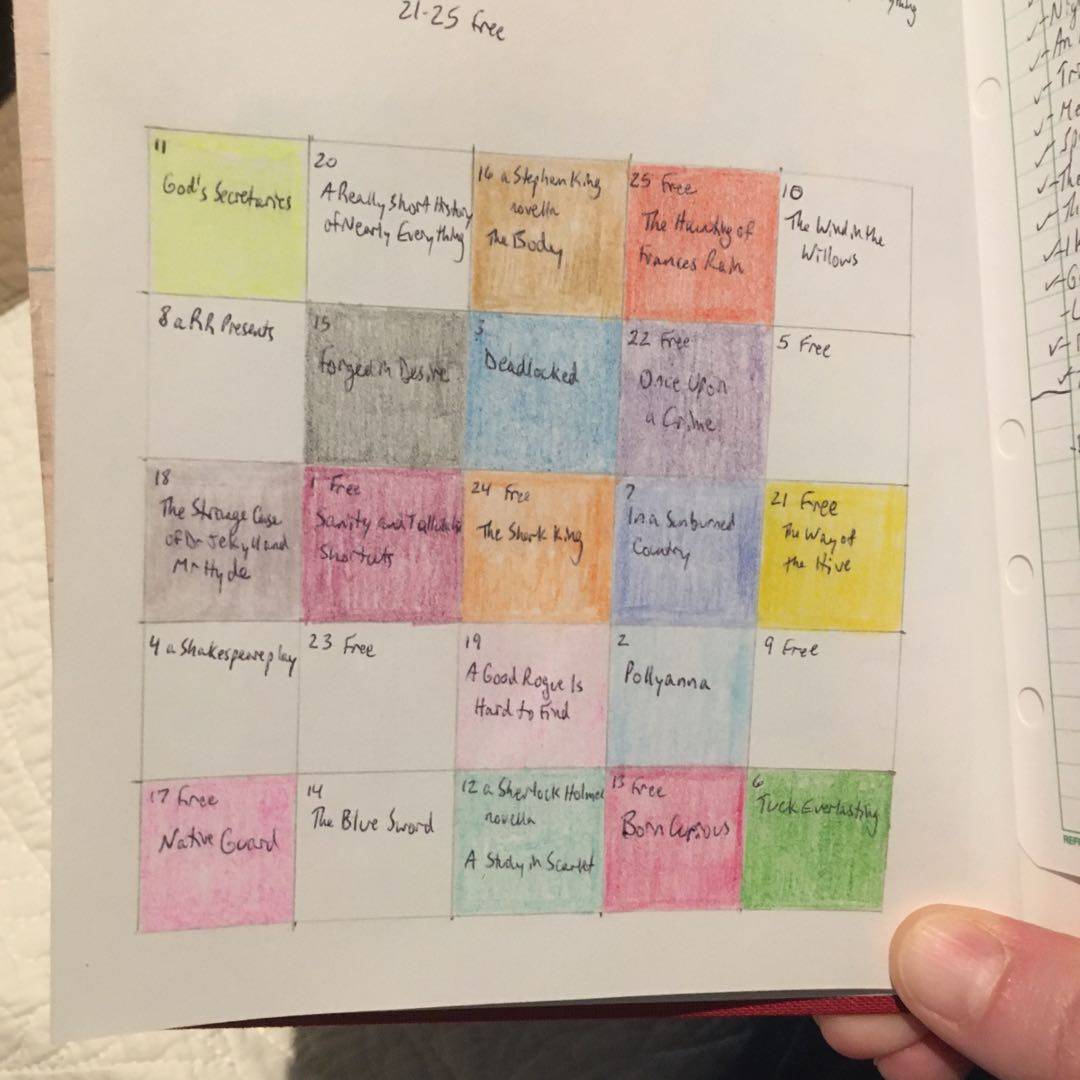 21-25 Free
11
God's Secretaries
20
A Really Short History
of Nearly Everything
16 a Stephen King
novella
The Body
25 Free
The Haunting of
Frances Rain
10
The Wind in the
Willows
8 a RR Presents
15
Forged in Desire
3
Deadlocked
22 Free
Once Upon
a Crime
5 Free
18
The Strange Case
of Dr Jekyll and
Mr Hyde
1 Free
Sanity and Tallulah
Shortcuts
24 Free
The Shark King
7
In a Sunburned
Country
21 Free
The Way of
the Hive
4 a Shakespeare play
23 Free
19
A Good Rogue Is
Hard to Find
2
Pollyanna
9 Free
17 Free
Native Guard
14
The Blue Sword
12 a Sherlock Holmes
novella
A Study in Scarlet
13 Free
Born Curious
6
Tuck Everlasting